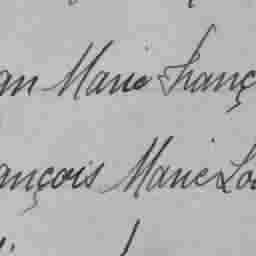 an Marie Franç
ançois Marie Lo